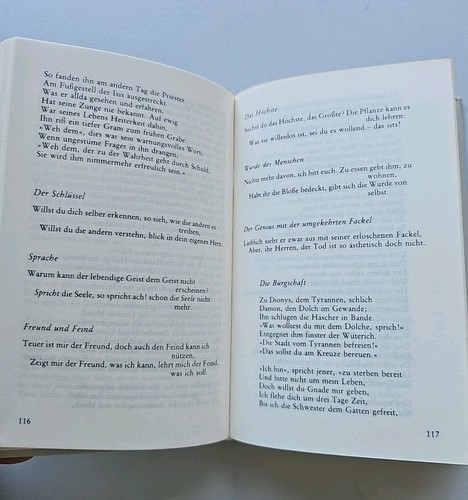 So fanden ihn am andern Tag die Priester
Am Fußgestell der Isis ausgestreckt.
Was er allda gesehen und erfahren,
Hat seine Zunge nie bekannt. Auf ewig
War seines Lebens Heiterkeit dahin,
Ihn riß ein tiefer Gram zum frühen Grabe.
»Weh dem«, dies war sein warnungsvolles Wort,
Wenn ungestüme Frager in ihn drangen,
»Weh dem, der zu der Wahrheit geht durch Schuld,
Sie wird ihm nimmermehr erfreulich sein.«
Der Schlüssel
Willst du dich selber erkennen, so sieh, wie die andern es
treiben,
Willst du die andern verstehn, blick in dein eigenes Herz.
Sprache
Warum kann der lebendige Geist dem Geist nicht
erscheinen?
Spricht die Seele, so spricht ach! schon die Seele nicht
mehr.
Freund und Feind
Teuer ist mir der Freund, doch auch den Feind kann ich
nützen,
Zeigt mir der Freund, was ich kann, lehrt mich der Feind,
was ich soll.
116
Das Höchste
Suchst du das Höchste, das Größte? Die Pflanze kann es
dich lehren:
Was sie willenlos ist, sei du es wollend – das ists!
Würde des Menschen
Nichts mehr davon, ich bitt euch. Zu essen gebt ihm, zu
wohnen,
Habt ihr die Blöße bedeckt, gibt sich die Würde von
selbst.
Der Genius mit der umgekehrten Fackel
Lieblich sieht er zwar aus mit seiner erloschenen Fackel,
Aber, ihr Herren, der Tod ist so ästhetisch doch nicht.
Die Bürgschaft
Zu Dionys, dem Tyrannen, schlich
Damon, den Dolch im Gewande;
Ihn schlugen die Häscher in Bande.
»Was wolltest du mit dem Dolche, sprich!«
Entgegnet ihm finster der Wüterich.
»Die Stadt vom Tyrannen befreien!«
»Das sollst du am Kreuze bereuen.«
»Ich bin«, spricht jener, »zu sterben bereit
Und bitte nicht um mein Leben,
Doch willst du Gnade mir geben,
Ich flehe dich um drei Tage Zeit,
Bis ich die Schwester dem Gatten gefreit,
117